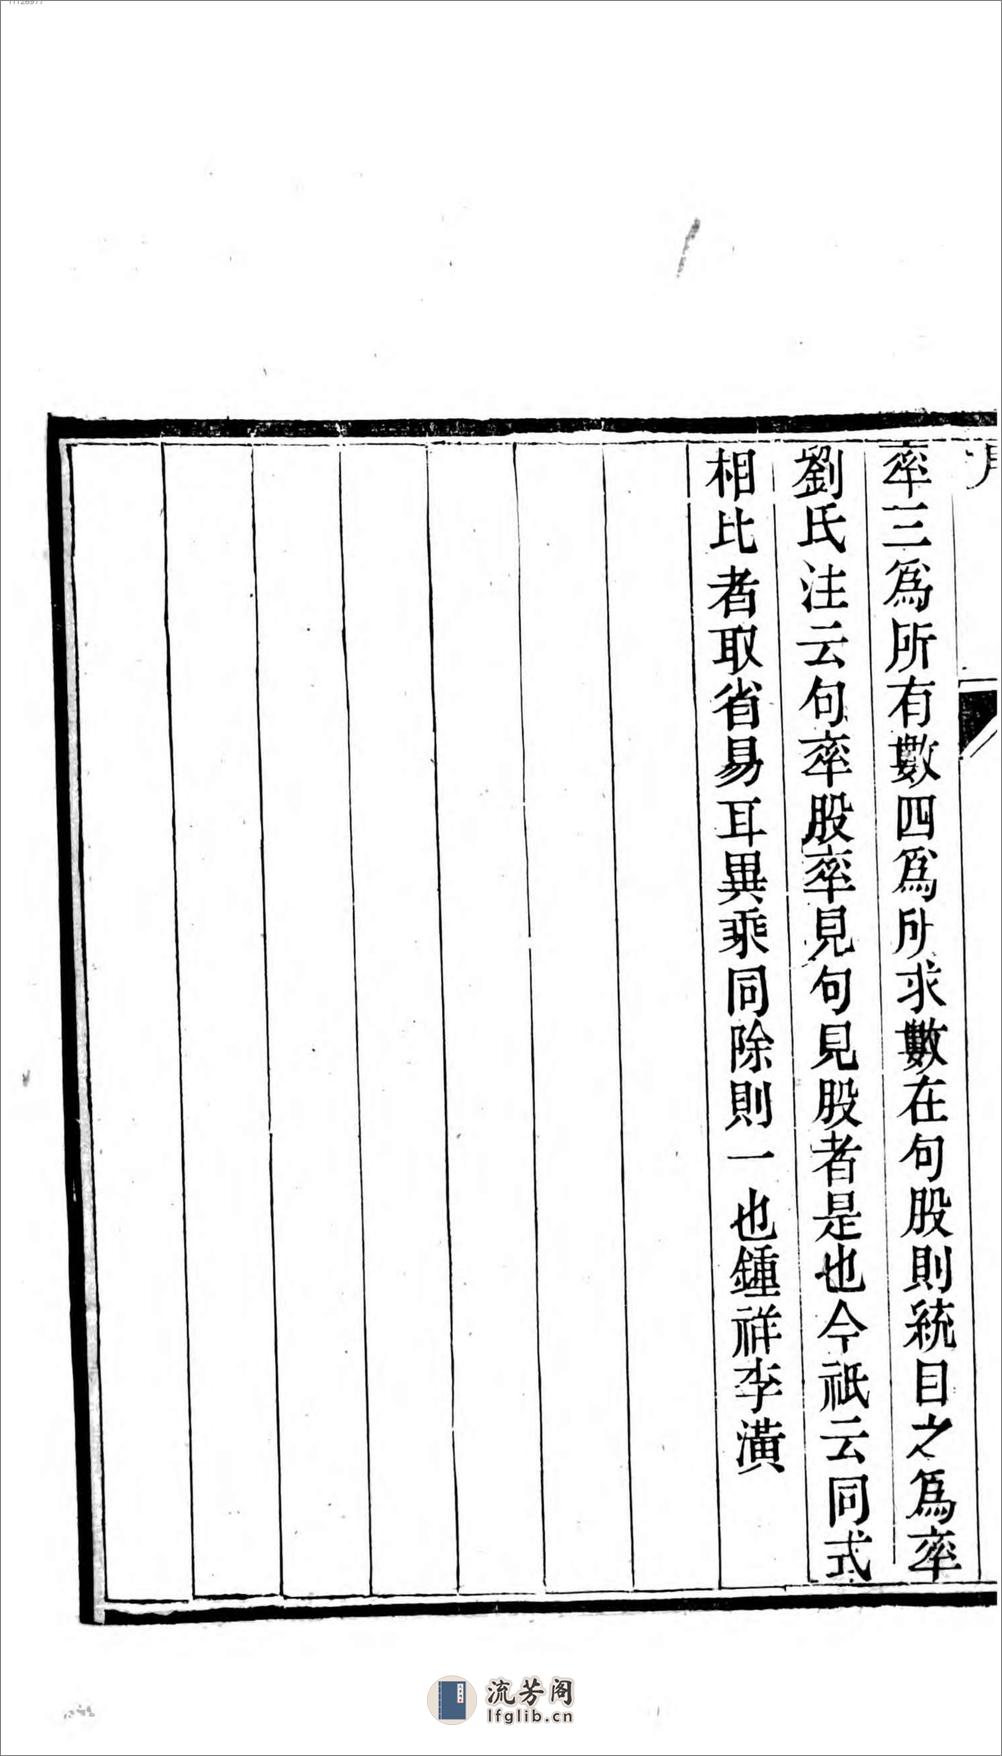 率三爲所有數四爲所求數在句股則統目之爲率
劉氏注云句率股率見句見股者是也今祇云同式
相比者取省易耳異乘同除則一也鍾祥李潢
流芳阁
lfglib.cn